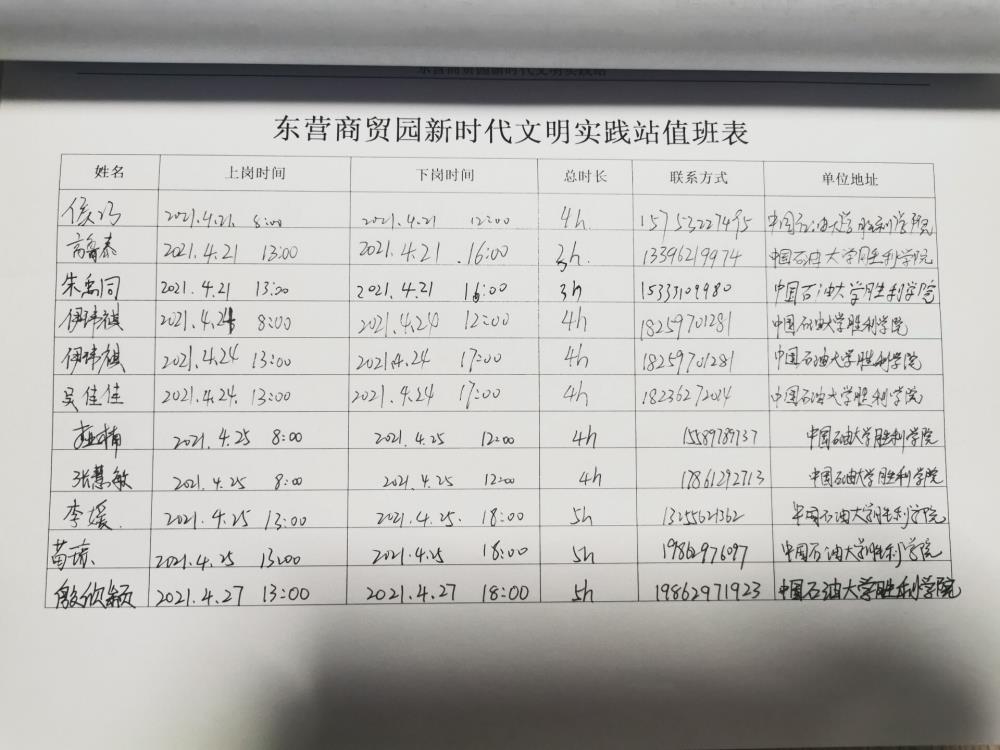 东营商贸园新时代文明实践站
东营商贸园新时代文明实践站值班表
姓名 上岗时间 下岗时间 总时长 联系方式 单位地址
侯 2021.4.21 8:00 2021.4.21 12:00 4h 15753227495 中国石油大学胜利学院
高鲁泰 2021.4.21 13:00 2021.4.21 16:00 3h. 13396219974 中国石油大学胜利学院
朱禹同 2021.4.21 13:00 2021.4.21 16:00 3h 15333109980 中国石油大学胜利学院
伊玮祺 2021.4.24 8:00 2021.4.24 12:00 4h 18259701281 中国石油大学胜利学院
伊玮祺 2021.4.24 13:00 2021.4.24 17:00 4h 18259701281 中国石油大学胜利学院
吴佳佳 2021.4.24. 13:00 2021.4.24 17:00 4h 18236272014 中国石油大学胜利学院
楠 2021.4.25 8:00 2021.4.25 12:00 4h 15589789737 中国石油大学胜利学院
张慧敏 2021.4.25 8:00 2021.4.25 12:00 4h 17861292713 中国石油大学胜利学院
李媛. 2021.4.25 13:00 2021.4.25. 18:00 5h 13255621362 中国石油大学胜利学院
苗琼. 2021.4.25 13:00 2021.4.25 18:00 5h 19862976097 中国石油大学胜利学院
殷欣颖 2021.4.27 13:00 2021.4.27 18:00 5h 19862971923 中国石油大学胜利学院